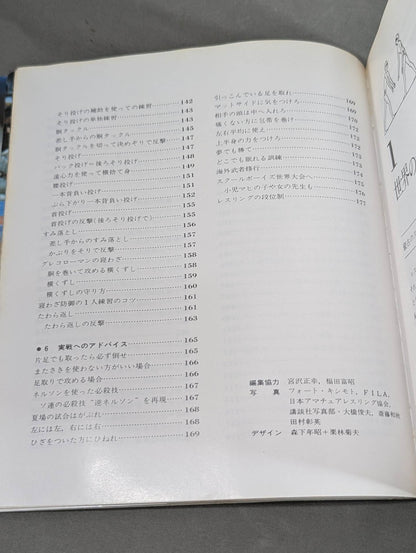 そり投げの補助を使っての練習 142
そり投げの単独練習 143
胴タックル 143
差し手からの胴タックル 144
胴タックルを切って決めそりで反撃 145
そり投げ 147
バック投げ＝後ろそり投げ 148
遠心力を使って横捨て身 149
腰投げ 150
一本背負い投げ 151
ぶら下がり一本背負い投げ 152
首投げ 153
首投げの反撃(後ろそり投げで) 154
すみ落とし 155
差し手からのすみ落とし 156
かぶりをそりで反撃 157
グレコローマンの寝わざ 158
胴を巻いて攻める横くずし 158
横くずし 159
横くずしの守り方 160
寝わざ防御の1人練習のコツ 160
たわら返し 161
たわら返しの反撃 163
●6 実戦へのアドバイス 165
片足でも取ったら必ず倒せ 165
またさきを使わない方がいい場合 166
足取りで攻める場合 166
ネルソンを使った必殺技 167
ソ連の必殺技“逆ネルソン”を再現 167
夏場の試合はがぶれ 168
左には左，右には右 168
ひざをついた方にひねれ 169
引っこんでいる足を取れ 169
マットサイドに気をつけろ
相手の頭は中へ入れろ
痛くない方に包帯を巻け 171
左右平均に使え 172
上半身の力をつけろ 172
夢でも勝て
どこでも眠れる訓練
海外武者修行
スクールボーイズ世界大会へ
小児マヒの子や女の先生も
レスリングの段位制 177
編集協力 宮沢正幸，福田富昭
写真 フォート・キシモト，FILA，
日本アマチュアレスリング協会，
講談社写真部・大橋俊夫，斎藤和欣
田村彰英
デザイン 森下年昭＋栗林菊夫
1
世界の